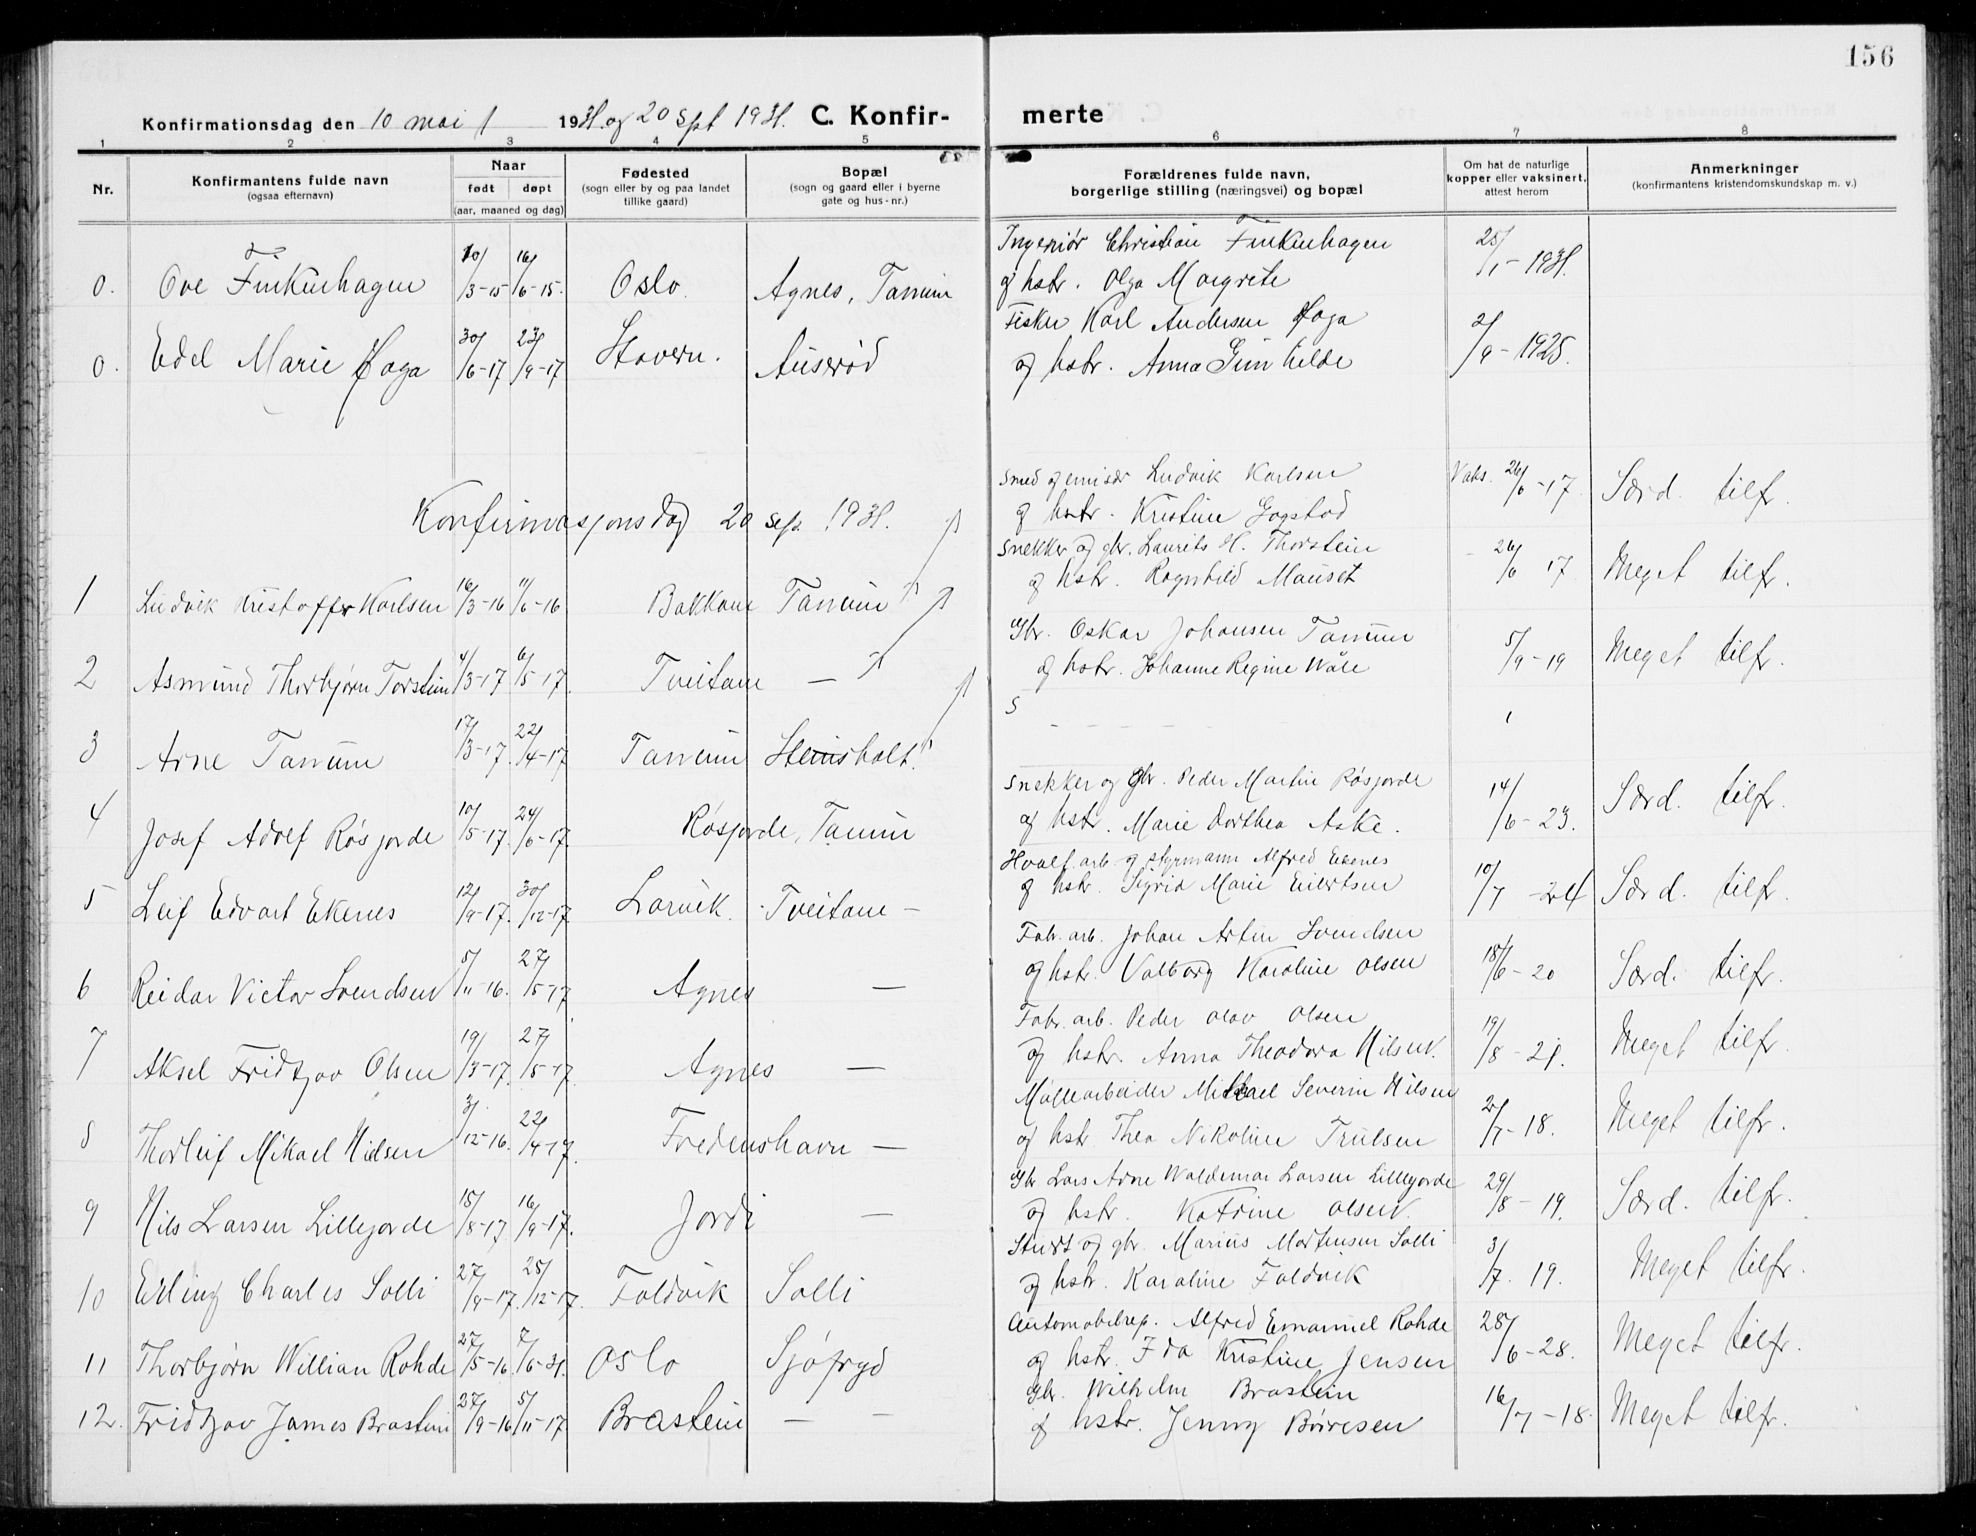 156
Konfirmationsdag den 10 mai / 1931. og 20 Sept 1931. C. Konfir- merte
1 2 3 4 5 6 7 8
Nr. Konfirmantens fulde navn (ogsaa efternavn) Naar født døpt (aar, maaned og dag) Fødested (sogn eller by og paa landet tillike gaard) Bopæl (sogn og gaard eller i byerne gate og hus-nr.) Forældrenes fulde navn, borgerlige stilling (næringsvei) og bopæl Om hat de naturlige kopper eller vaksinert, attest herom Anmerkninger (konfirmantens kristendomskundskap m. v.)
0. Ove Finkenhagen 10/3-15 16/6-15. Oslo Agnes, Tanum Ingeniør Christian Finkenhagen og hstr. Olga Margrete 25/1-1931.
0. Edel Marie Foga 30/6-17 23/9-17 Stavern. Auserød Fisker Karl Andersen Foga og hstr. Anna Gunhilde 2/9-1925.
Konfirmasjonsdag 20 sep. 1931.
1 Ludvik Kristoffer Karlsen 16/3-16 11/6-16 Bakkane Tanum Smed og emisær Ludvik Karlsen og hstr. Kristine Gogstad Vaks. 26/6-17. Særd. tilfr.
2 Asmund Thorbjørn Torstein 4/3-17 6/5-17. Tveitane — Snekker og gbr. Laurits H. Thorstein og hstr. Ragnhild Mauset - 26/6 17 Meget tilfr.
3 Arne Tanum 17/3-17. 22/4-17 Tanum Steinsholt. Gbr. Oskar Johansen Tanum og hstr. Johanne Regine Wåle 5/9-19 Meget tilfr.
S
4 Josef Adolf Røsjorde 10/5-17. 24/6-17. Røsjorde, Tanum Snekker og gbr. Peder Martin Røsjorde og hstr. Marie Dorthea Aske. 14/6-23. Særd. tilfr.
5 Leif Edvart Ekenes 12/9-17. 30/12-17. Larvik. Tveitane — Hvalf. arb. og styrmann Alfred Ekenes og hstr. Sigrid Marie Eilertsen 10/7-24 Særd. tilfr.
6 Reidar Victor Svendsen 5/11-16. 27/5-17 Agnes — Fabr. arb. Johan Artin Svendsen og hstr. Valborg Karoline Olsen 18/6-20 Særd. tilfr.
7 Aksel Fridtjov Olsen 19/3-17. 27/5-17. Agnes — Fabr. arb. Peder Olav Olsen og hstr. Anna Theodora Nilsen. 19/8-21. Meget tilfr.
8 Thorleif Mikael Nielsen 3/12-16. 22/4-17. Fredenshavn — Møllearbeider Mikael Severin Nilsen og hstr. Thea Nikoline Trulsen 2/7-18. Meget tilfr.
9 Nils Larsen Lillejorde 15/8-17 16/9-17. Jordi — Gbr Lars Arne Waldemar Larsen Lillejorde og hstr. Katrine Olsen. 29/8-19. Særd. tilfr.
10 Erling Charles Solli 27/9-17. 25/12-17. Foldvik Solli Stuert og gbr. Marius Mortensen Solli og hstr. Karoline Foldvik 3/7. 19. Meget tilfr.
11 Thorbjørn Willian Rohde 27/5-16. 7/6-31. Oslo Sjøfryd Automobilrep. Alfred Emanuel Rohde og hstr. Ida Kristine Jensen 28/6-28. Meget tilfr.
12. Fridtjov James Brastein 27/9-16 5/11-17 Brastein — — Gbr. Wilhelm Brastein og hstr. Jenny Børresen 16/7-18. Meget tilfr.